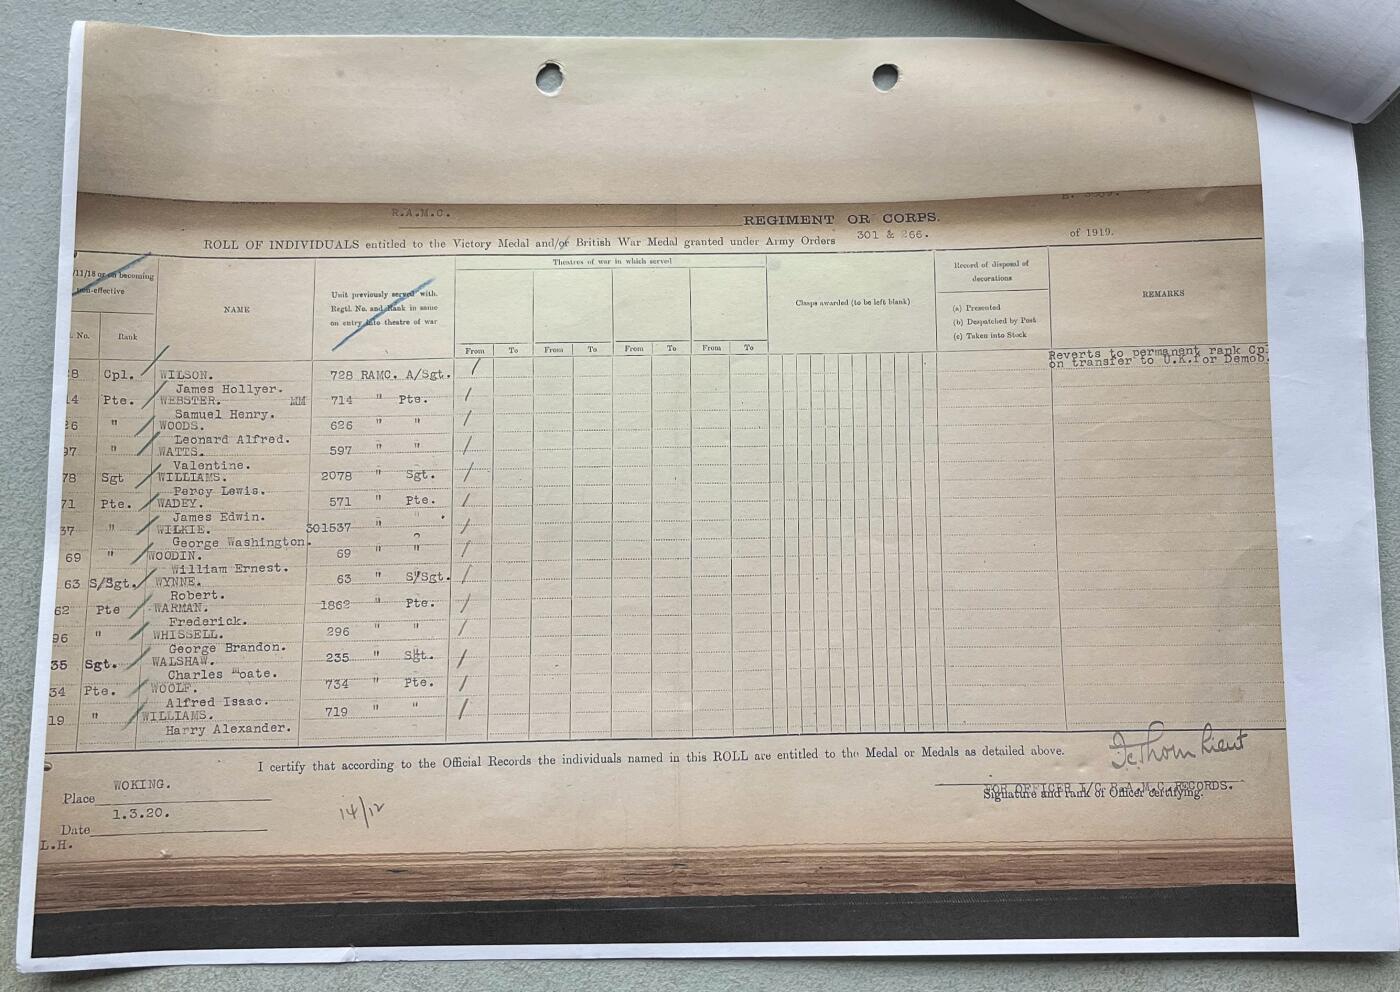 R.A.M.C.
REGIMENT OR CORPS.
ROLL OF INDIVIDUALS entitled to the Victory Medal and/or British War Medal granted under Army Orders 301 & 266. of 1919.
/11/18 or on becoming
non-effective
No.
Rank
NAME
Unit previously served with.
Regtl. No. and Rank in same
on entry into theatre of war
Theatres of war in which served
From To From To From To From To
Clasps awarded (to be left blank)
Record of disposal of
decorations
(a) Presented
(b) Despatched by Post
(c) Taken into Stock
REMARKS
Reverts to permanent rank Cpl
on transfer to U.K. for Demob.
8 Cpl. WILSON. 728 RAMC. A/Sgt. /
James Hollyer.
4 Pte. WEBSTER. MM 714 " Pte. /
Samuel Henry.
26 " WOODS. 626 " " /
Leonard Alfred.
97 " WATTS. 597 " " /
Valentine.
78 Sgt WILLIAMS. 2078 " Sgt. /
Percy Lewis.
71 Pte. WADEY. 571 " Pte. /
James Edwin.
37 " WILKIE. 301537 " " /
George Washington.
69 " WOODIN. 69 " " /
William Ernest.
63 S/Sgt. WYNNE. 63 " S/Sgt. /
Robert.
62 Pte WARMAN. 1862 " Pte. /
Frederick.
96 " WHISSELL. 296 " " /
George Brandon.
35 Sgt. WALSHAW. 235 " Sgt. /
Charles
34 Pte. WOOLF. 734 " Pte. /
Alfred Isaac.
19 " WILLIAMS. 719 " " /
Harry Alexander.
I certify that according to the Official Records the individuals named in this ROLL are entitled to the Medal or Medals as detailed above.
Thom Lieut
FOR OFFICER I/C R.A.M.C. RECORDS.
Signature and rank of Officer certifying.
Place WOKING.
Date 1.3.20.
14/12
L.H.